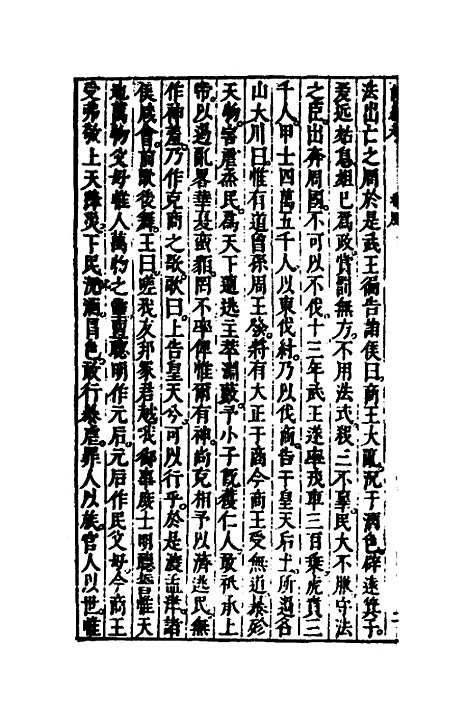 法出亡之周於是武王徧告諸侯曰商王大亂沉于酒色辟遠箕子
爰近姑息妲己爲政賞罰無方不用法式殺三不辜民大不服守法
之臣出奔周國不可以不伐十三年武王遂率戎車三百乘虎賁三
千人甲士四萬五千人以東伐紂乃以伐商告于皇天后土所過名
山大川曰惟有道曾孫周王發將有大正于商今商王受無道暴殄
天物害虐烝民爲天下逋逃主萃淵藪予小子既獲仁人敢祗承上
帝以遏亂畧華夏蠻貊罔不率俾惟爾有神尚克相予以濟兆民無
作神羞乃作克商之歌歌曰上告皇天兮可以行乎於是渡孟津諸
侯咸會前歌後舞王曰嗟我友邦冢君越我御事庶士明聽誓惟天
地萬物父母惟人萬物之靈亶聰明作元后元后作民父母今商王
受弗敬上天降災下民沉湎冒色敢行暴虐罪人以族官人以世惟